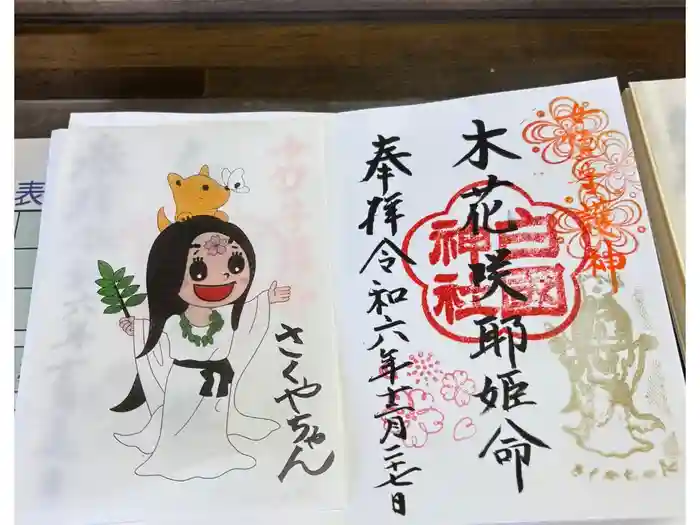 木花咲耶姫命
奉拝令和六年十二月二十七日
白國
神社
さくやちゃん
表